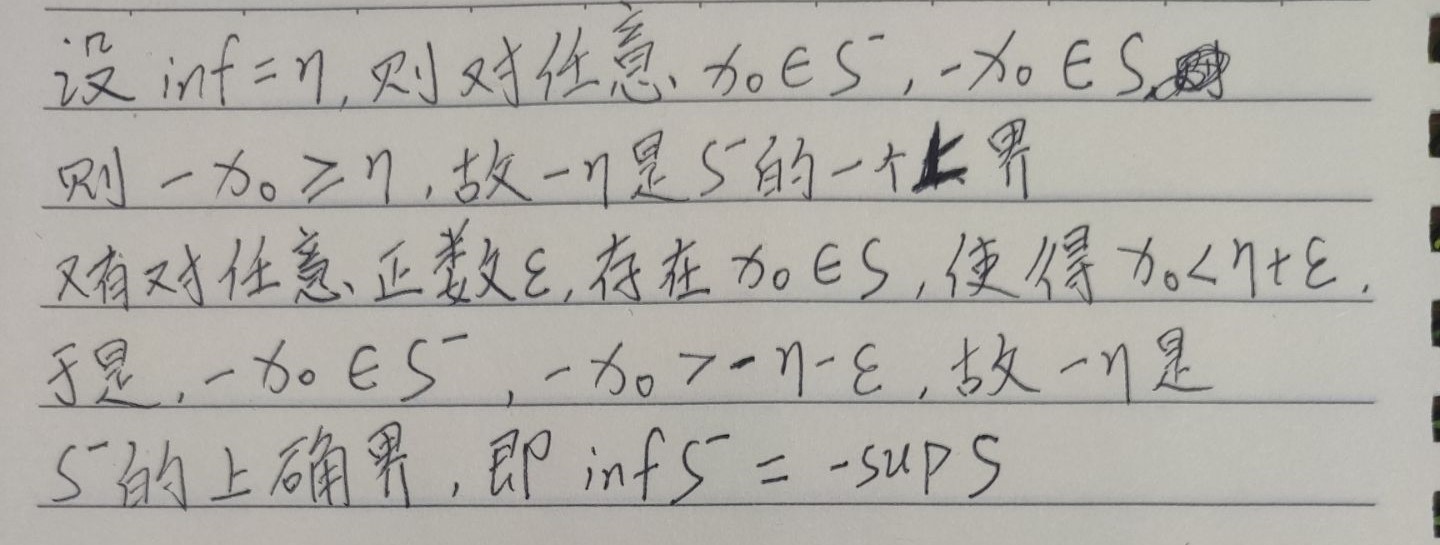 设 inf=η, 则对任意 x₀∈S⁻, -x₀∈S,
则 -x₀≥η, 故-η是S⁻的一个上界
又有对任意正数ε, 存在 x₀∈S, 使得 x₀<η+ε.
于是, -x₀∈S⁻, -x₀>-η-ε, 故-η是
S⁻的上确界, 即 infS⁻=-supS